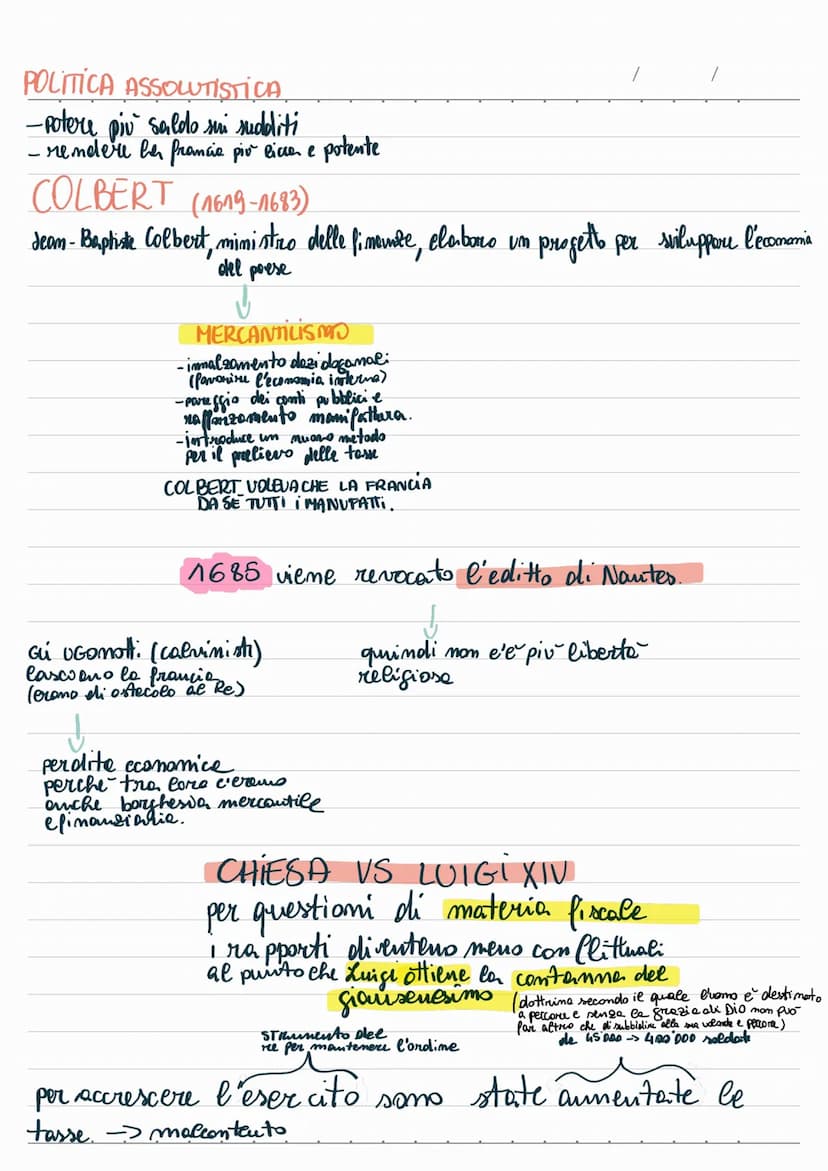 / /
POLITICA ASSOLUTISTICA
- potere più saldo sui sudditi
- rendere la francia più ricca e potente
COLBERT (1619-1683)
Jean-Baptiste Colbert, ministro delle finanze, elaboro un progetto per sviluppare l'economia
del paese
↓
MERCANTILISMO
- innalzamento dazi doganali
(favorire l'economia interna)
- pareggio dei conti pubblici e
rafforzamento manifattura.
- introduce un nuovo metodo
per il prelievo delle tasse
COLBERT VOLEVA CHE LA FRANCIA
DA SE TUTTI i MANUFATTi.
1685 viene revocato l'editto di Nantes.
↓
Gli UGONOTTi (calvinisti)
lasciano la francia
(erano di ostacolo al Re)
quindi non c'è più libertà
religiosa
↓
perdite economica
perchè tra loro c'erano
anche borghesia mercantile
e finanziaria.
CHIESA VS LUIGI XIV
per questioni di materia fiscale
i rapporti diventano meno conflittuali
al punto che Luigi ottiene la contanna del
giansenesimo (dottrina secondo il quale l'uomo è destinato
a peccare e senza la grazia di DIO non può
far altro che disubbidire alla sua volontà e peccare)
STRUMENTO DEL
re per mantenere l'ordine
da 45'000 -> 400'000 soldati
per accrescere l'esercito sono state aumentate le
tasse. -> malcontento